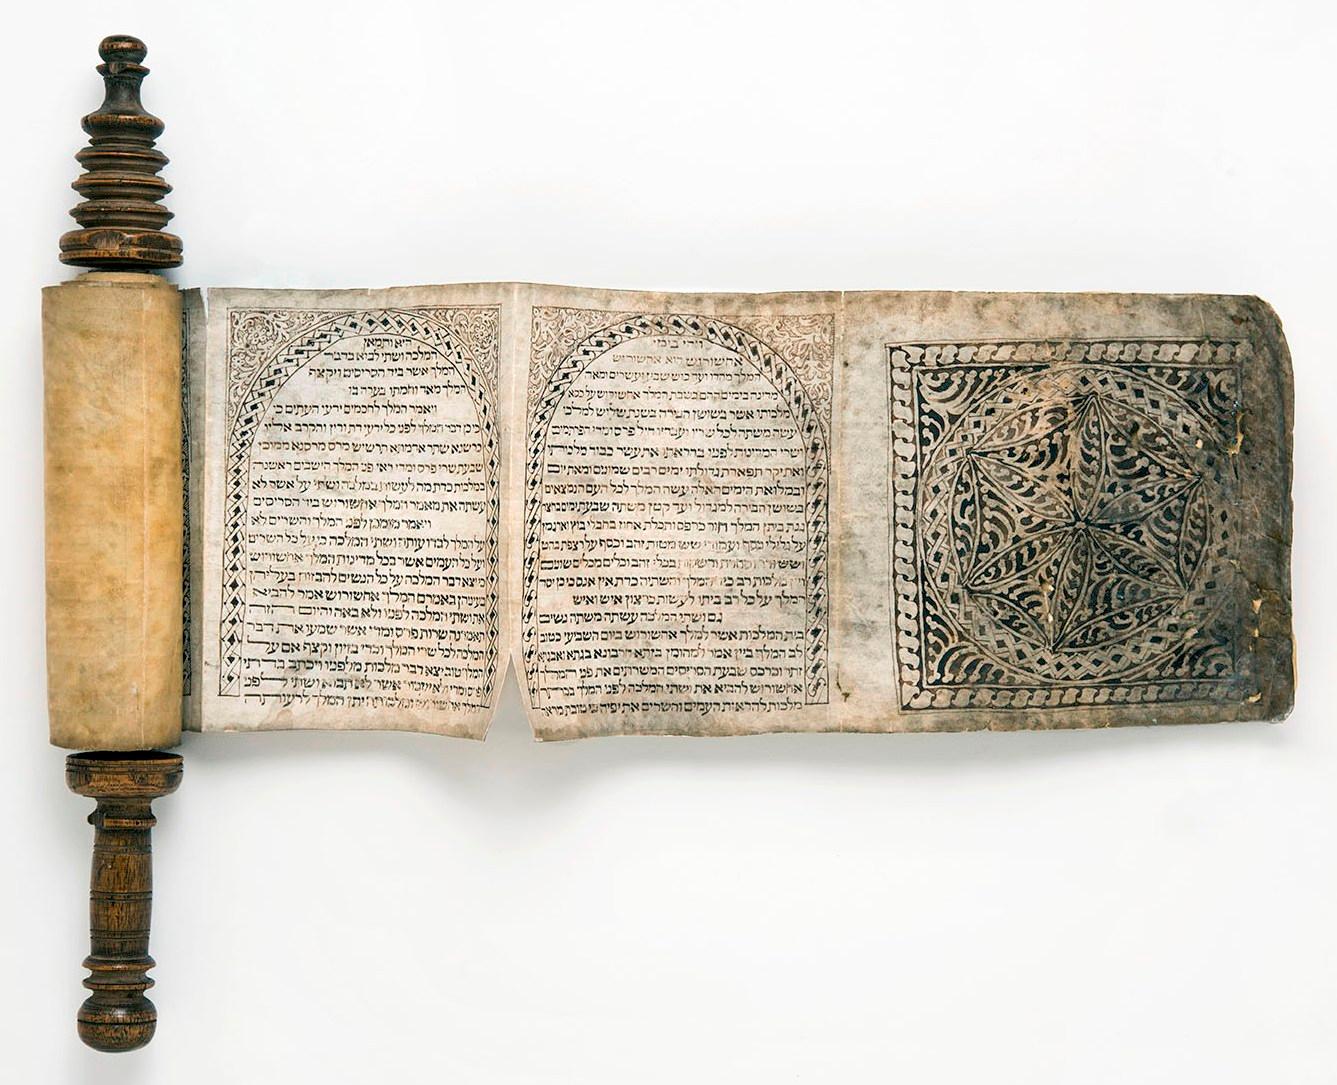 ויהי בימי
אחשורוש הוא אחשורוש
המלך מהדו ועד כוש שבע ועשרים ומאה
מדינה בימים ההם כשבת המלך אחשורוש על כסא
מלכותו אשר בשושן הבירה בשנת שלוש למלכו
עשה משתה לכל שריו ועבדיו חיל פרס ומדי הפרתמים
ושרי המדינות לפניו בהראתו את עשר כבוד מלכותו
ואת יקר תפארת גדולתו ימים רבים שמונים ומאת יום
ובמלואת הימים האלה עשה המלך לכל העם הנמצאים
בשושן הבירה למגדול ועד קטן משתה שבעת ימים בחצר
גנת ביתן המלך חור כרפס ותכלת אחוז בחבלי בוץ וארגמן
על גלילי כסף ועמודי שש מטות זהב וכסף על רצפת בהט
ושש ודר וסחרת והשקות בכלי זהב וכלים מכלים שונים
ויין מלכות רב כיד המלך והשתיה כדת אין אנס כי כן יסד
המלך על כל רב ביתו לעשות כרצון איש ואיש
גם ושתי המלכה עשתה משתה נשים
בית המלכות אשר למלך אחשורוש ביום השביעי כטוב
לב המלך ביין אמר למהומן בזתא חרבונא בגתא ואבגתא
זתר וכרכס שבעת הסריסים המשרתים את פני המלך
אחשורוש להביא את ושתי המלכה לפני המלך בכתר
מלכות להראות העמים והשרים את יפיה כי טובת מראה
היא ותמאן
המלכה ושתי לבוא בדבר
המלך אשר ביד הסריסים ויקצף
המלך מאד וחמתו בערה בו
ויאמר המלך לחכמים ידעי העתים כי
כן דבר המלך לפני כל ידעי דת ודין והקרב אליו
כרשנא שתר אדמתא תרשיש מרס מרסנא ממוכן
שבעת שרי פרס ומדי ראי פני המלך הישבים ראשנה
במלכות כדת מה לעשות במלכה ושתי על אשר לא
עשתה את מאמר המלך אחשורוש ביד הסריסים
ויאמר מומכן לפני המלך והשרים לא
על המלך לבדו עותה ושתי המלכה כי על כל השרים
ועל כל העמים אשר בכל מדינות המלך אחשורוש
כי יצא דבר המלכה על כל הנשים להבזות בעליהן
בעיניהן באמרם המלך אחשורוש אמר להביא
את ושתי המלכה לפניו ולא באה והיום הזה
תאמרנה שרות פרס ומדי אשר שמעו את דבר
המלכה לכל שרי המלך וכדי בזיון וקצף אם על
המלך טוב יצא דבר מלכות מלפניו ויכתב בדתי
פרס ומדי ולא יעבור אשר לא תבוא ושתי לפני
המלך אחשורוש ומלכותה יתן המלך לרעותה